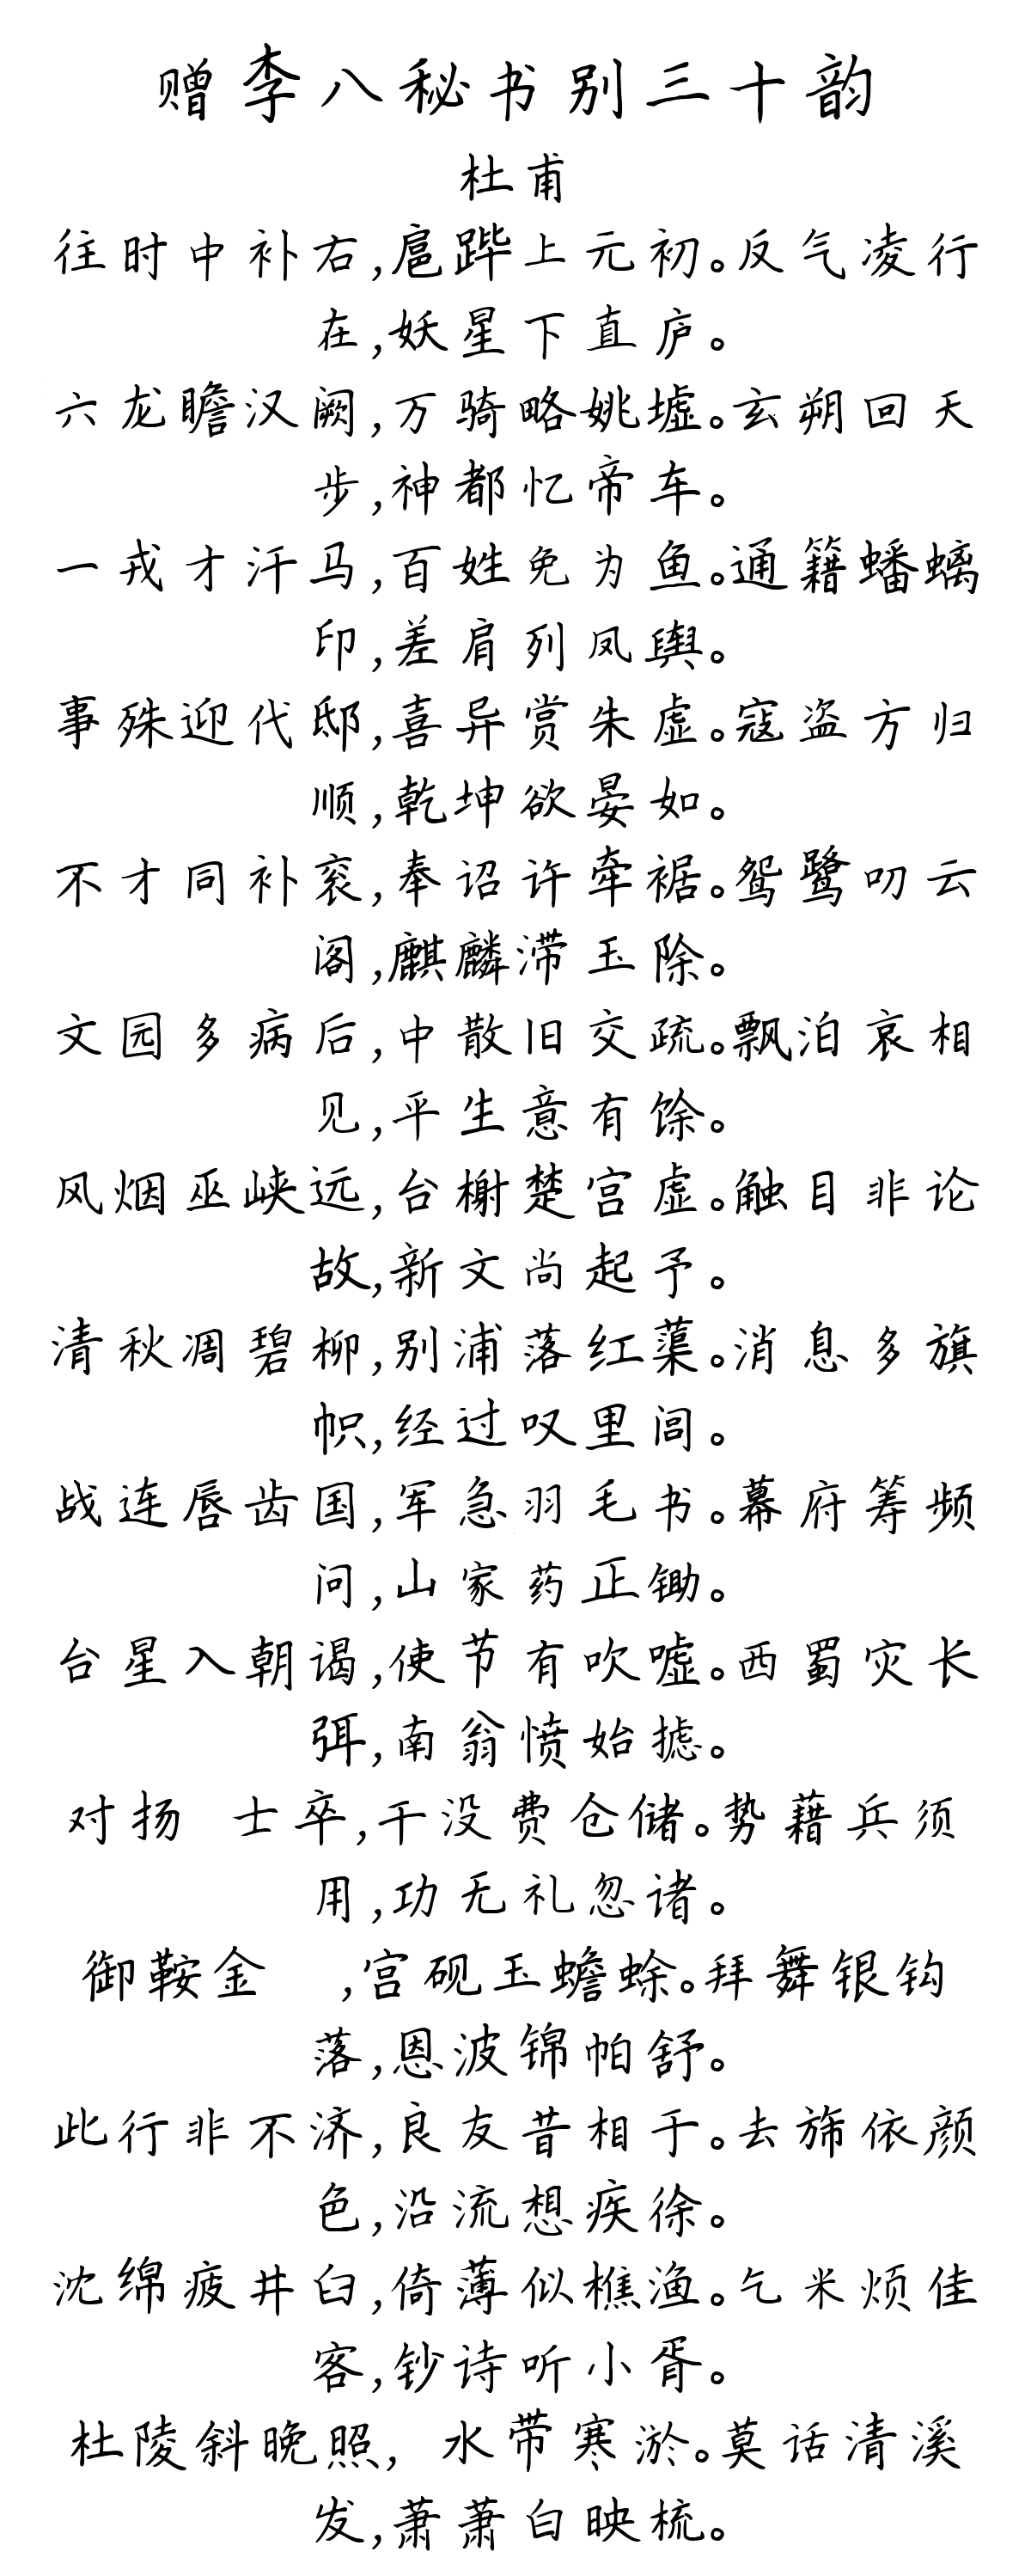 赠李八秘书别三十韵
杜甫
往时中补右,扈跸上元初。反气凌行
在,妖星下直庐。
六龙瞻汉阙,万骑略姚墟。玄朔回天
步,神都忆帝车。
一戎才汗马,百姓免为鱼。通籍蟠螭
印,差肩列凤舆。
事殊迎代邸,喜异赏朱虚。寇盗方归
顺,乾坤欲晏如。
不才同补衮,奉诏许牵裾。鸳鹭叨云
阁,麒麟滞玉除。
文园多病后,中散旧交疏。飘泊哀相
见,平生意有馀。
风烟巫峡远,台榭楚宫虚。触目非论
故,新文尚起予。
清秋凋碧柳,别浦落红蕖。消息多旗
帜,经过叹里闾。
战连唇齿国,军急羽毛书。幕府筹频
问,山家药正锄。
台星入朝谒,使节有吹嘘。西蜀灾长
弭,南翁愤始摅。
对扬 士卒,干没费仓储。势藉兵须
用,功无礼忽诸。
御鞍金 ,宫砚玉蟾蜍。拜舞银钩
落,恩波锦帕舒。
此行非不济,良友昔相于。去旆依颜
色,沿流想疾徐。
沈绵疲井臼,倚薄似樵渔。乞米烦佳
客,钞诗听小胥。
杜陵斜晚照, 水带寒淤。莫话清溪
发,萧萧白映梳。